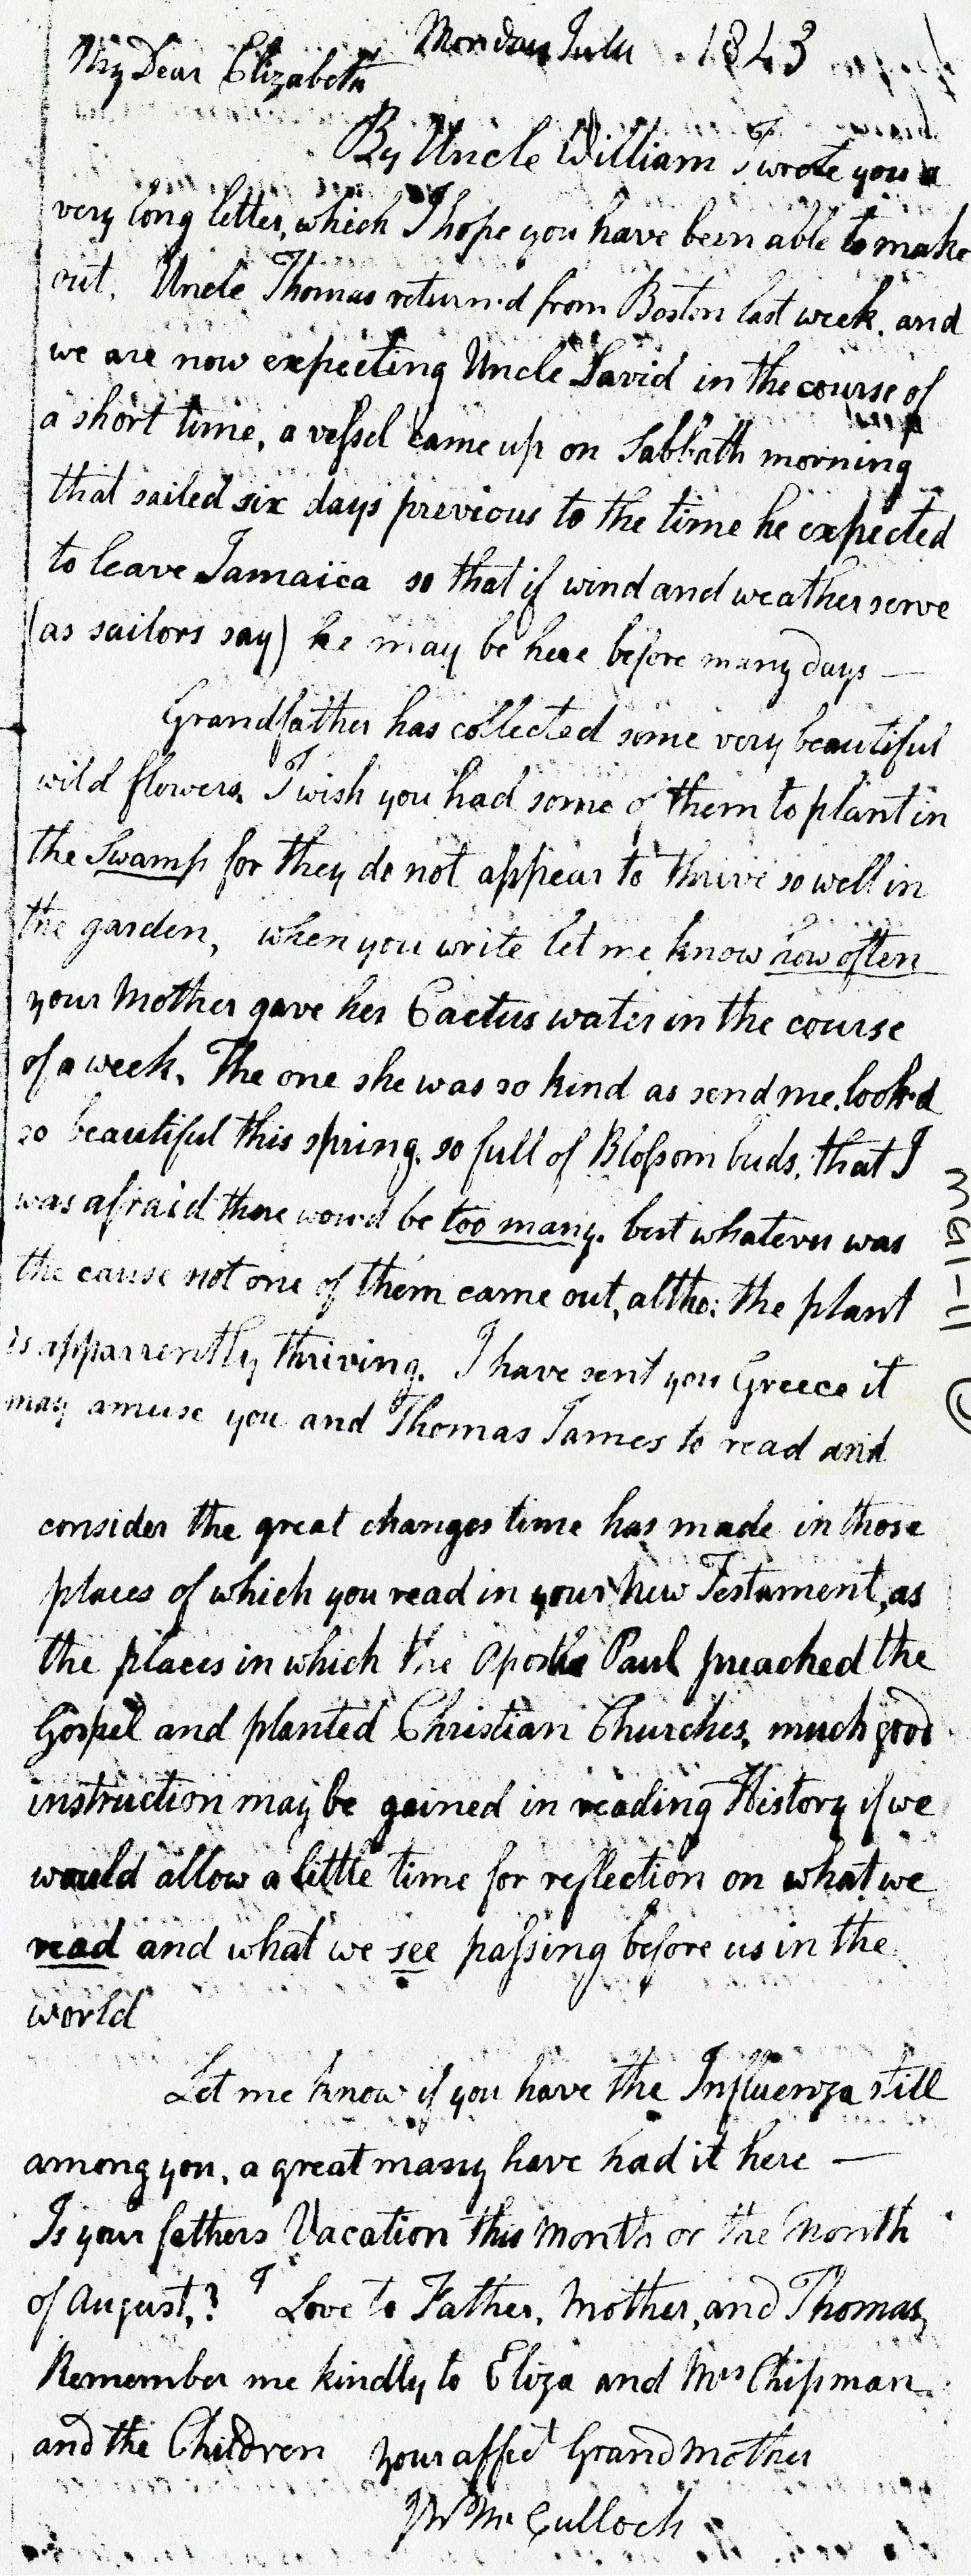 Monday July 1843
My Dear Elizabeth
By Uncle William I wrote you a
very long letter, which I hope you have been able to make
out. Uncle Thomas return'd from Boston last week. and
we are now expecting Uncle David in the course of
a short time, a vessel came up on Sabbath morning
that sailed six days previous to the time he expected
to leave Jamaica so that if wind and weather serve
(as sailors say) he may be here before many days —
Grandfather has collected some very beautiful
wild flowers. I wish you had some of them to plant in
the Swamp for they do not appear to thrive so well in
the garden, when you write let me know how often
your Mother gave her Cactus water in the course
of a week. The one she was so kind as send me. look'd
so beautiful this spring. so full of Blossom buds. that I
was afraid there wou'd be too many. but whatever was
the cause not one of them came out, altho: the plant
is apparrently thriving. I have sent you Greece it
may amuse you and Thomas James to read and
consider the great changes time has made in those
places of which you read in your New Testament, as
the places in which the Apostle Paul preached the
Gospel and planted Christian Churches, much good
instruction may be gained in reading History if we
would allow a little time for reflection on what we
read and what we see passing before us in the
world
Let me know if you have the Influenza still
among you, a great many have had it here —
Is your fathers Vacation this Month or the Month
of August,? Love to Father, Mother, and Thomas,
Remember me kindly to Eliza and Mrs Chipman
and the Children your affect Grandmother
McCulloch
MG1-11